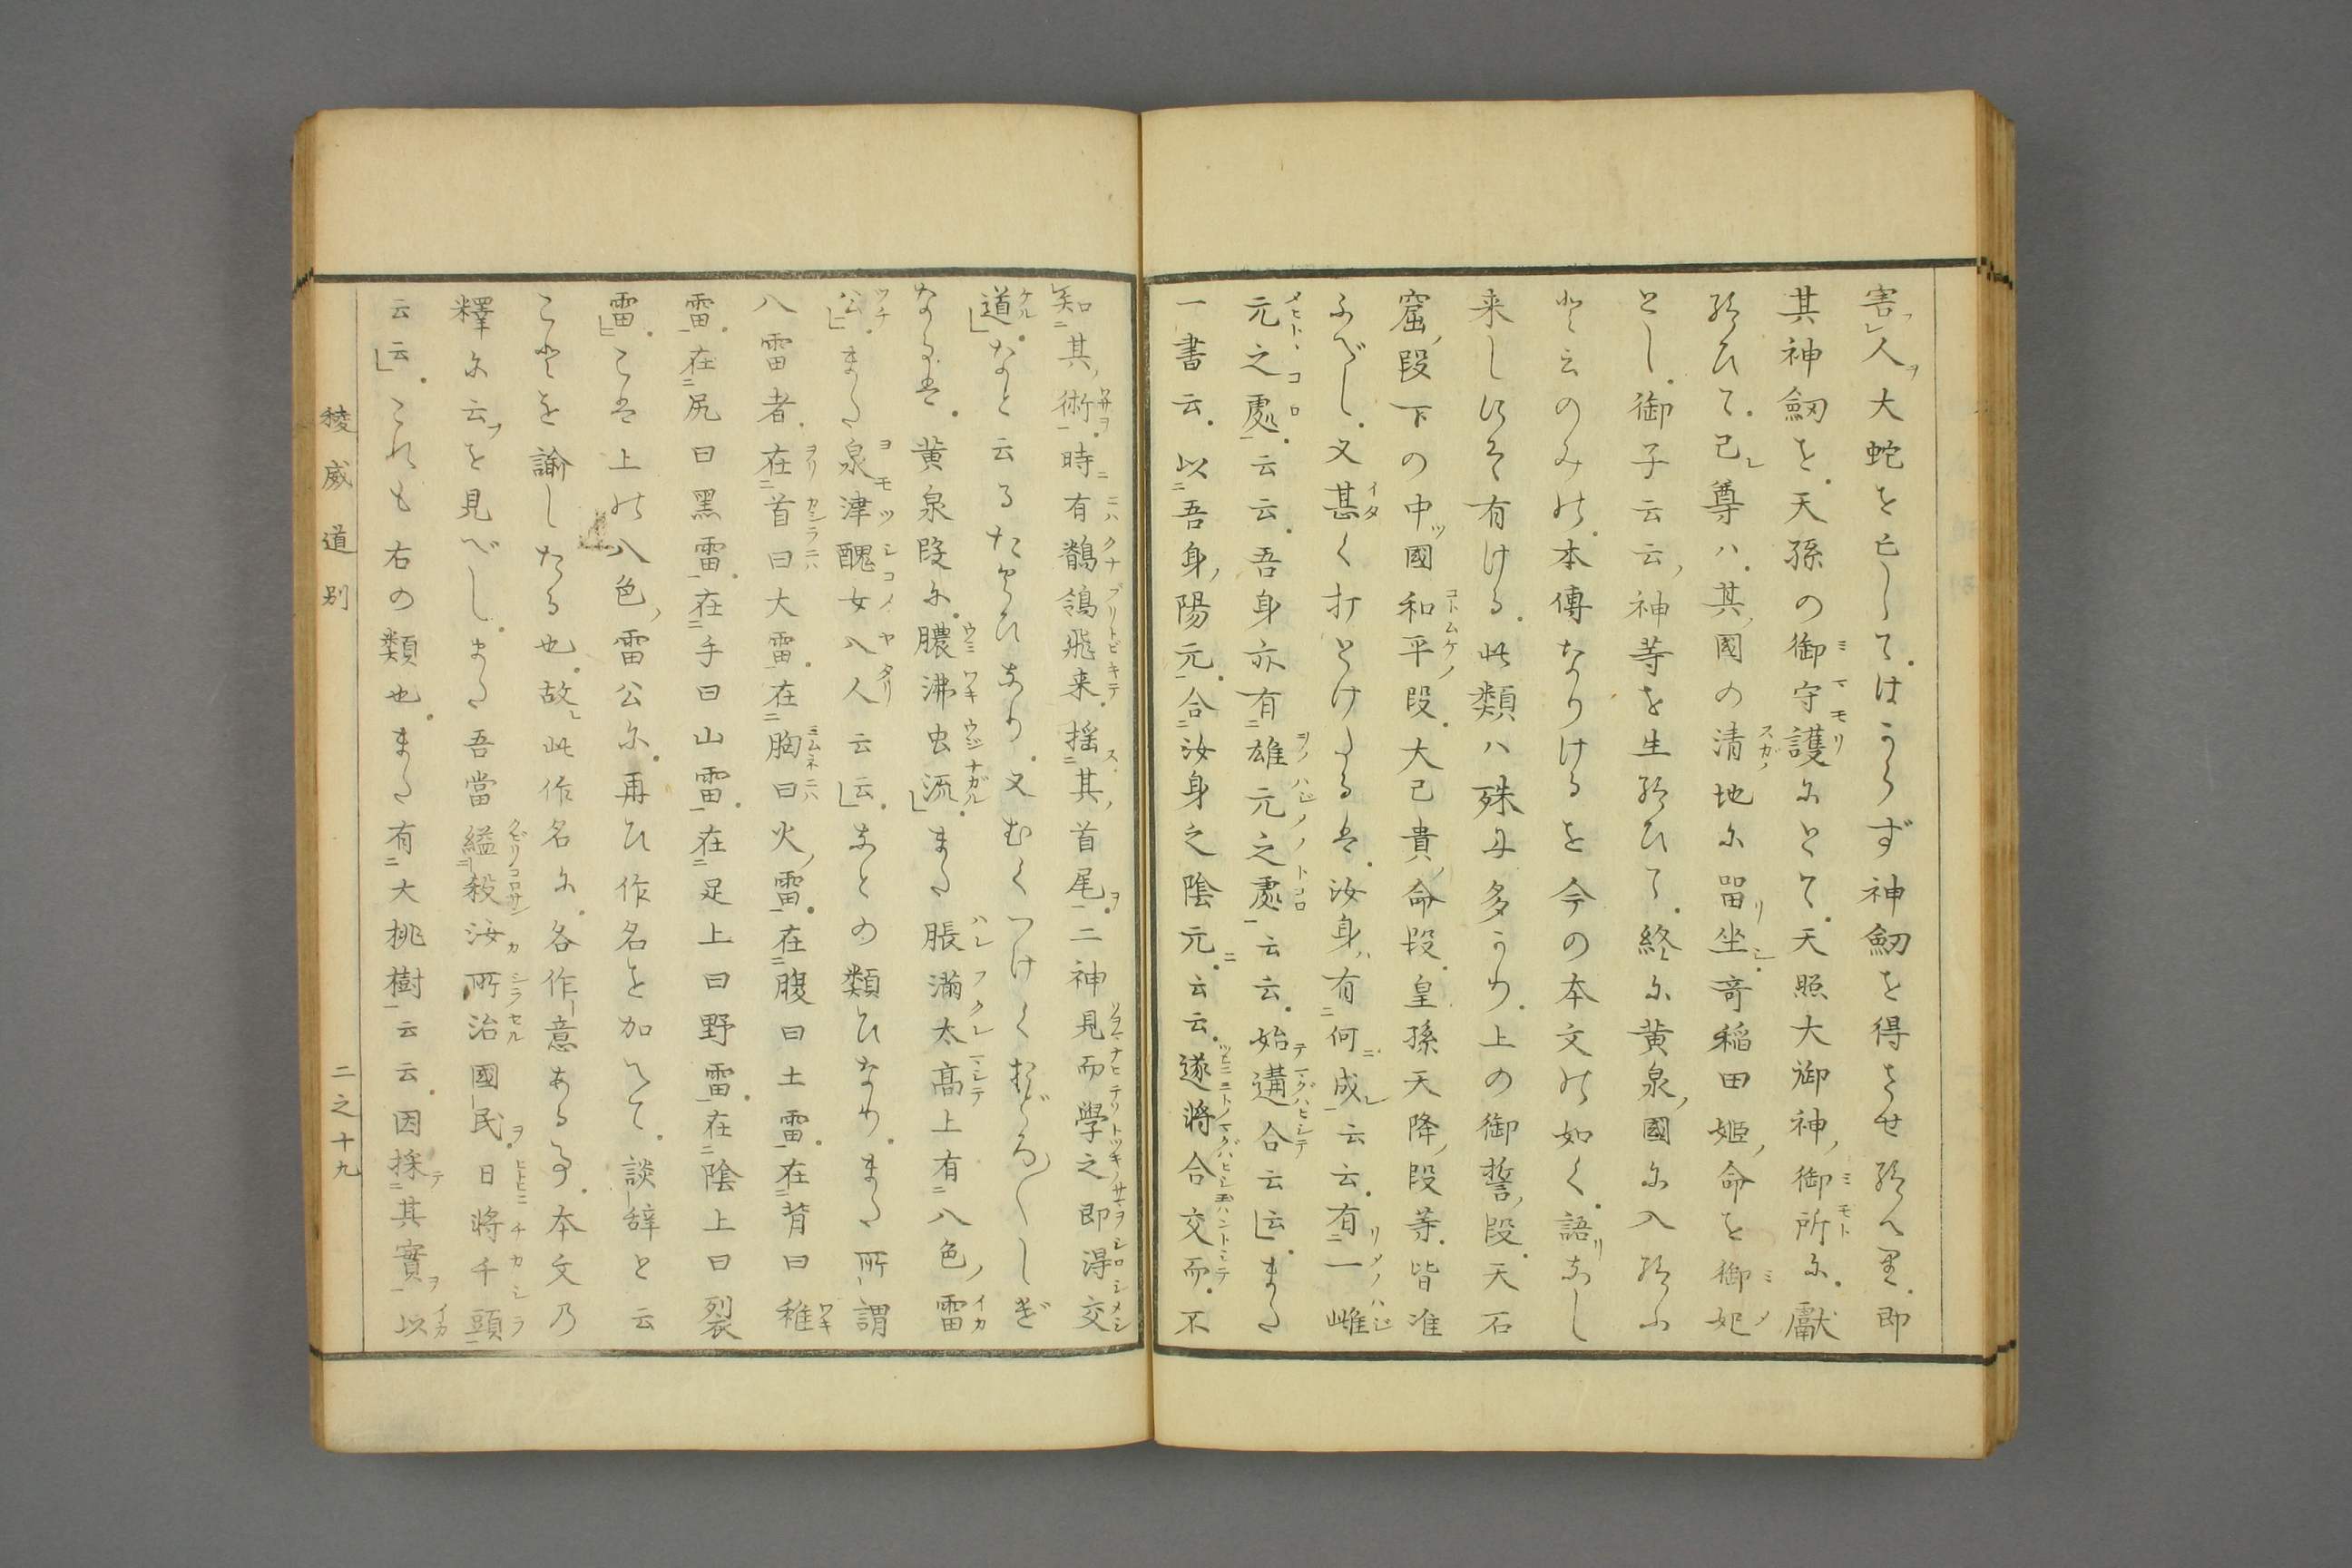 害人大蛇を亡して。はからず神劔を得させ給へ里。即
其神劔を。天孫の御守護尓とて。天照大御神御所尓。獻
給ひて。己尊ハ。其國の清地尓留坐。奇稲田姫命を御妃
とし。御子云云神等を生給ひて。終尓黄泉國尓入給ふ
と云のみ此。本傳なりけるを今の本文此如く。語なし
来しにそ有ける。此類ハ殊尓多かり。上の御誓段。天石
窟段下の中國和平段。大己貴命段。皇孫天降段等。皆准
ふべし。又甚く打とけたる者。汝身有何成云云。有一雌
元之處云云。吾身亦有雄元之處云云。始遘合云云」。また
一書云。以吾身陽元。合汝身之陰元。云云。遂將合交而。不
知其術。時有鶺鴒飛来。揺其首尾。二神見而學之即得交
道」。なと云るたぐひなり。又むくつけくおどろ〳〵しげ
なる者。黄泉段尓。膿沸虫流」。また脹滿太高上有八色雷
公」。また泉津醜女八人云云」。なとの類ひなり。また所謂
八雷者。在首曰大雷。在胸曰火雷。在腹曰土雷。在背曰稚
雷。在尻曰黒雷。在手曰山雷。在足上曰野雷。在陰上曰裂
雷」。こは上此八色雷公尓。再ひ作名を加へて。談辞と云
ことを諭したる也。故此作名尓。各作意ある事。本文乃
釋尓云を見べし。また吾當縊殺汝所治國民。日將千頭
云云」。これも右の類也。また有大桃樹云云。因採其實以
稜威道別
二之十九